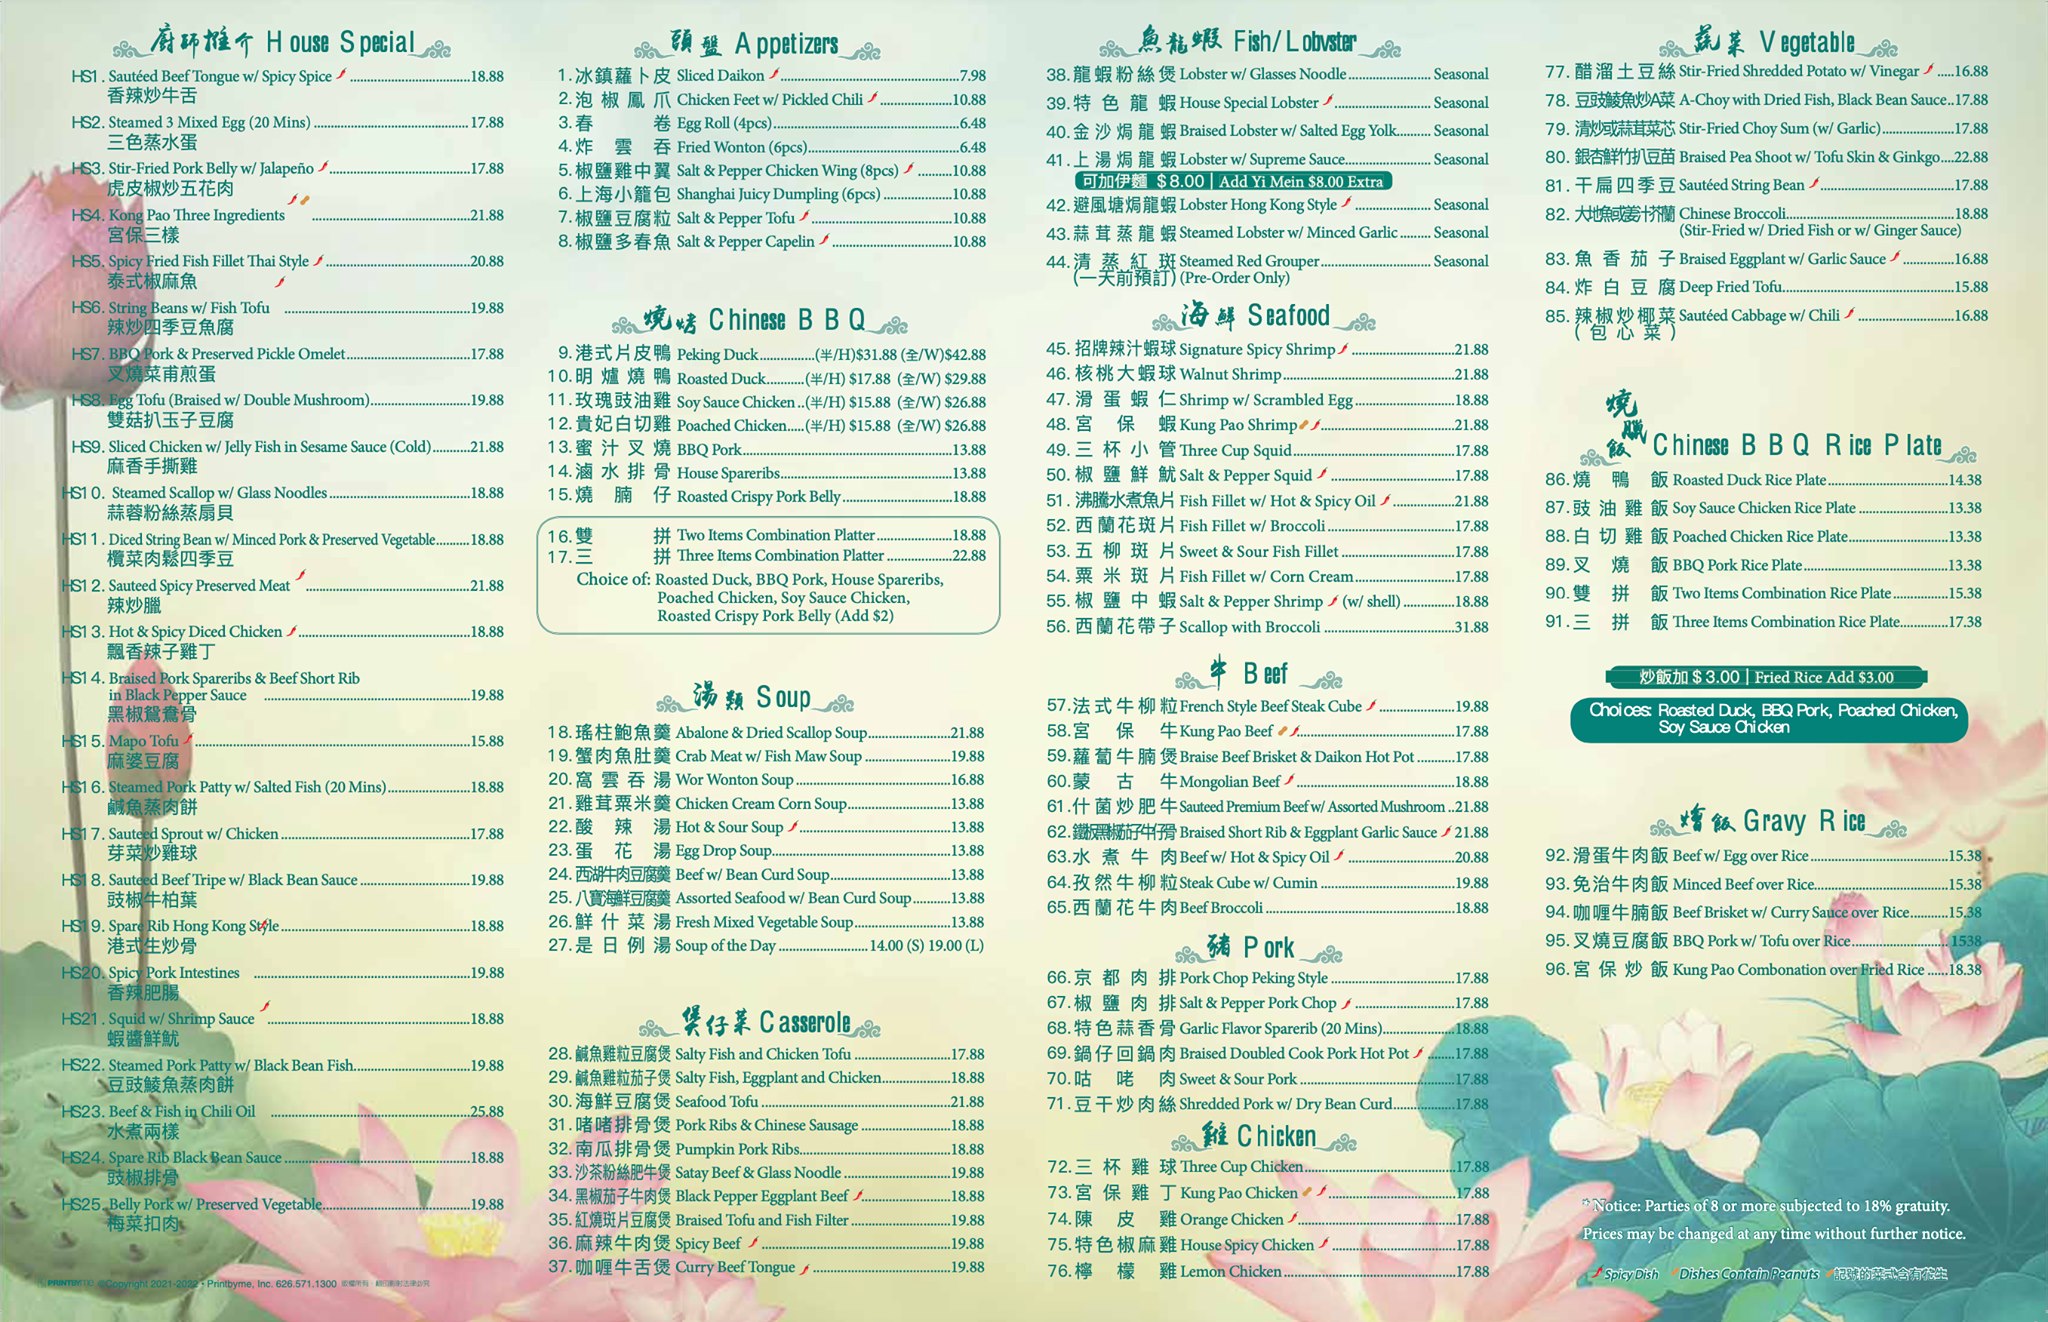 廚師推介 House Special
HS1. Sautéed Beef Tongue w/ Spicy Spice 18.88
香辣炒牛舌
HS2. Steamed 3 Mixed Egg (20 Mins) 17.88
三色蒸水蛋
HS3. Stir-Fried Pork Belly w/ Jalapeño 17.88
虎皮椒炒五花肉
HS4. Kong Pao Three Ingredients 21.88
宮保三樣
HS5. Spicy Fried Fish Fillet Thai Style 20.88
泰式椒麻魚
HS6. String Beans w/ Fish Tofu 19.88
辣炒四季豆魚腐
HS7. BBQ Pork & Preserved Pickle Omelet 17.88
叉燒菜甫煎蛋
HS8. Egg Tofu (Braised w/ Double Mushroom) 19.88
雙菇扒玉子豆腐
HS9. Sliced Chicken w/ Jelly Fish in Sesame Sauce (Cold) 21.88
麻香手撕雞
HS10. Steamed Scallop w/ Glass Noodles 18.88
蒜蓉粉絲蒸扇貝
HS11. Diced String Bean w/ Minced Pork & Preserved Vegetable 18.88
欖菜肉鬆四季豆
HS12. Sauteed Spicy Preserved Meat 21.88
辣炒臘
HS13. Hot & Spicy Diced Chicken 18.88
飄香辣子雞丁
HS14. Braised Pork Spareribs & Beef Short Rib
in Black Pepper Sauce 19.88
黑椒鴛鴦骨
HS15. Mapo Tofu 15.88
麻婆豆腐
HS16. Steamed Pork Patty w/ Salted Fish (20 Mins) 18.88
鹹魚蒸肉餅
HS17. Sauteed Sprout w/ Chicken 17.88
芽菜炒雞球
HS18. Sauteed Beef Tripe w/ Black Bean Sauce 19.88
豉椒牛柏葉
HS19. Spare Rib Hong Kong Style 18.88
港式生炒骨
HS20. Spicy Pork Intestines 19.88
香辣肥腸
HS21. Squid w/ Shrimp Sauce 18.88
蝦醬鮮魷
HS22. Steamed Pork Patty w/ Black Bean Fish 19.88
豆豉鯪魚蒸肉餅
HS23. Beef & Fish in Chili Oil 25.88
水煮兩樣
HS24. Spare Rib Black Bean Sauce 18.88
豉椒排骨
HS25. Belly Pork w/ Preserved Vegetable 19.88
梅菜扣肉
PRINTBYme ©Copyright 2021-2022 • Printbyme, Inc. 626.571.1300
頭盤 Appetizers
1. 冰鎮蘿卜皮 Sliced Daikon 7.98
2. 泡椒鳳爪 Chicken Feet w/ Pickled Chili 10.88
3. 春卷 Egg Roll (4pcs) 6.48
4. 炸雲吞 Fried Wonton (6pcs) 6.48
5. 椒鹽雞中翼 Salt & Pepper Chicken Wing (8pcs) 10.88
6. 上海小籠包 Shanghai Juicy Dumpling (6pcs) 10.88
7. 椒鹽豆腐粒 Salt & Pepper Tofu 10.88
8. 椒鹽多春魚 Salt & Pepper Capelin 10.88
燒烤 Chinese BBQ
9. 港式片皮鴨 Peking Duck (半/H)$31.88 (全/W)$42.88
10. 明爐燒鴨 Roasted Duck (半/H) $17.88 (全/W) $29.88
11. 玫瑰豉油雞 Soy Sauce Chicken (半/H) $15.88 (全/W) $26.88
12. 貴妃白切雞 Poached Chicken (半/H) $15.88 (全/W) $26.88
13. 蜜汁叉燒 BBQ Pork 13.88
14. 滷水排骨 House Spareribs 13.88
15. 燒腩仔 Roasted Crispy Pork Belly 18.88
16. 雙拼 Two Items Combination Platter 18.88
17. 三拼 Three Items Combination Platter 22.88
Choice of: Roasted Duck, BBQ Pork, House Spareribs,
Poached Chicken, Soy Sauce Chicken,
Roasted Crispy Pork Belly (Add $2)
湯類 Soup
18. 瑤柱鮑魚羹 Abalone & Dried Scallop Soup 21.88
19. 蟹肉魚肚羹 Crab Meat w/ Fish Maw Soup 19.88
20. 窩雲吞湯 Wor Wonton Soup 16.88
21. 雞茸粟米羹 Chicken Cream Corn Soup 13.88
22. 酸辣湯 Hot & Sour Soup 13.88
23. 蛋花湯 Egg Drop Soup 13.88
24. 西湖牛肉豆腐羹 Beef w/ Bean Curd Soup 13.88
25. 八寶海鮮豆腐羹 Assorted Seafood w/ Bean Curd Soup 13.88
26. 鮮什菜湯 Fresh Mixed Vegetable Soup 13.88
27. 是日例湯 Soup of the Day 14.00 (S) 19.00 (L)
煲仔菜 Casserole
28. 鹹魚雞粒豆腐煲 Salty Fish and Chicken Tofu 17.88
29. 鹹魚雞粒茄子煲 Salty Fish, Eggplant and Chicken 18.88
30. 海鮮豆腐煲 Seafood Tofu 21.88
31. 啫啫排骨煲 Pork Ribs & Chinese Sausage 18.88
32. 南瓜排骨煲 Pumpkin Pork Ribs 18.88
33. 沙茶粉絲肥牛煲 Satay Beef & Glass Noodle 19.88
34. 黑椒茄子牛肉煲 Black Pepper Eggplant Beef 18.88
35. 紅燒斑片豆腐煲 Braised Tofu and Fish Filter 19.88
36. 麻辣牛肉煲 Spicy Beef 19.88
37. 咖喱牛舌煲 Curry Beef Tongue 19.88
魚龍蝦 Fish/Lobvster
38. 龍蝦粉絲煲 Lobster w/ Glasses Noodle Seasonal
39. 特色龍蝦 House Special Lobster Seasonal
40. 金沙焗龍蝦 Braised Lobster w/ Salted Egg Yolk Seasonal
41. 上湯焗龍蝦 Lobster w/ Supreme Sauce Seasonal
可加伊麵 $8.00 | Add Yi Mein $8.00 Extra
42. 避風塘焗龍蝦 Lobster Hong Kong Style Seasonal
43. 蒜茸蒸龍蝦 Steamed Lobster w/ Minced Garlic Seasonal
44. 清蒸紅斑 Steamed Red Grouper Seasonal
(一天前預訂) (Pre-Order Only)
海鮮 Seafood
45. 招牌辣汁蝦球 Signature Spicy Shrimp 21.88
46. 核桃大蝦球 Walnut Shrimp 21.88
47. 滑蛋蝦仁 Shrimp w/ Scrambled Egg 18.88
48. 宮保蝦 Kung Pao Shrimp 21.88
49. 三杯小管 Three Cup Squid 17.88
50. 椒鹽鮮魷 Salt & Pepper Squid 17.88
51. 沸騰水煮魚片 Fish Fillet w/ Hot & Spicy Oil 21.88
52. 西蘭花斑片 Fish Fillet w/ Broccoli 17.88
53. 五柳斑片 Sweet & Sour Fish Fillet 17.88
54. 粟米斑片 Fish Fillet w/ Corn Cream 17.88
55. 椒鹽中蝦 Salt & Pepper Shrimp (w/ shell) 18.88
56. 西蘭花帶子 Scallop with Broccoli 31.88
牛 Beef
57. 法式牛柳粒 French Style Beef Steak Cube 19.88
58. 宮保牛 Kung Pao Beef 17.88
59. 蘿蔔牛腩煲 Braise Beef Brisket & Daikon Hot Pot 17.88
60. 蒙古牛 Mongolian Beef 18.88
61. 什菌炒肥牛 Sauteed Premium Beef w/ Assorted Mushroom 21.88
62. 鐵板黑椒茄子牛仔骨 Braised Short Rib & Eggplant Garlic Sauce 21.88
63. 水煮牛肉 Beef w/ Hot & Spicy Oil 20.88
64. 孜然牛柳粒 Steak Cube w/ Cumin 19.88
65. 西蘭花牛肉 Beef Broccoli 18.88
豬 Pork
66. 京都肉排 Pork Chop Peking Style 17.88
67. 椒鹽肉排 Salt & Pepper Pork Chop 17.88
68. 特色蒜香骨 Garlic Flavor Sparerib (20 Mins) 18.88
69. 鍋仔回鍋肉 Braised Doubled Cook Pork Hot Pot 17.88
70. 咕咾肉 Sweet & Sour Pork 17.88
71. 豆干炒肉絲 Shredded Pork w/ Dry Bean Curd 17.88
雞 Chicken
72. 三杯雞球 Three Cup Chicken 17.88
73. 宮保雞丁 Kung Pao Chicken 17.88
74. 陳皮雞 Orange Chicken 17.88
75. 特色椒麻雞 House Spicy Chicken 17.88
76. 檸檬雞 Lemon Chicken 17.88
蔬菜 Vegetable
77. 醋溜土豆絲 Stir-Fried Shredded Potato w/ Vinegar 16.88
78. 豆豉鯪魚炒A菜 A-Choy with Dried Fish, Black Bean Sauce 17.88
79. 清炒或蒜茸菜芯 Stir-Fried Choy Sum (w/ Garlic) 17.88
80. 銀杏鮮竹扒豆苗 Braised Pea Shoot w/ Tofu Skin & Ginkgo 22.88
81. 干扁四季豆 Sautéed String Bean 17.88
82. 大地魚或姜汁芥蘭 Chinese Broccoli 18.88
(Stir-Fried w/ Dried Fish or w/ Ginger Sauce)
83. 魚香茄子 Braised Eggplant w/ Garlic Sauce 16.88
84. 炸白豆腐 Deep Fried Tofu 15.88
85. 辣椒炒椰菜 Sautéed Cabbage w/ Chili 16.88
(包心菜)
燒臘飯 Chinese BBQ Rice Plate
86. 燒鴨飯 Roasted Duck Rice Plate 14.38
87. 豉油雞飯 Soy Sauce Chicken Rice Plate 13.38
88. 白切雞飯 Poached Chicken Rice Plate 13.38
89. 叉燒飯 BBQ Pork Rice Plate 13.38
90. 雙拼飯 Two Items Combination Rice Plate 15.38
91. 三拼飯 Three Items Combination Rice Plate 17.38
炒飯加 $3.00 | Fried Rice Add $3.00
Choices: Roasted Duck, BBQ Pork, Poached Chicken,
Soy Sauce Chicken
燴飯 Gravy Rice
92. 滑蛋牛肉飯 Beef w/ Egg over Rice 15.38
93. 免治牛肉飯 Minced Beef over Rice 15.38
94. 咖喱牛腩飯 Beef Brisket w/ Curry Sauce over Rice 15.38
95. 叉燒豆腐飯 BBQ Pork w/ Tofu over Rice 1538
96. 宮保炒飯 Kung Pao Combonation over Fried Rice 18.38
* Notice: Parties of 8 or more subjected to 18% gratuity.
Prices may be changed at any time without further notice.
Spicy Dish Dishes Contain Peanuts 記號的菜式含有花生